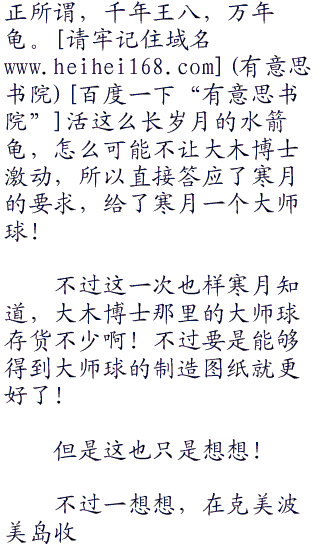 正所谓，千年王八，万年
龟。[请牢记住域名
www.heihei168.com](有意思
书院)[百度一下“有意思书
院”]活这么长岁月的水箭
龟，怎么可能不让大木博士
激动，所以直接答应了寒月
的要求，给了寒月一个大师
球！
不过这一次也样寒月知
道，大木博士那里的大师球
存货不少啊！不过要是能够
得到大师球的制造图纸就更
好了！
但是这也只是想想！
不过一想想，在克美波
美岛收